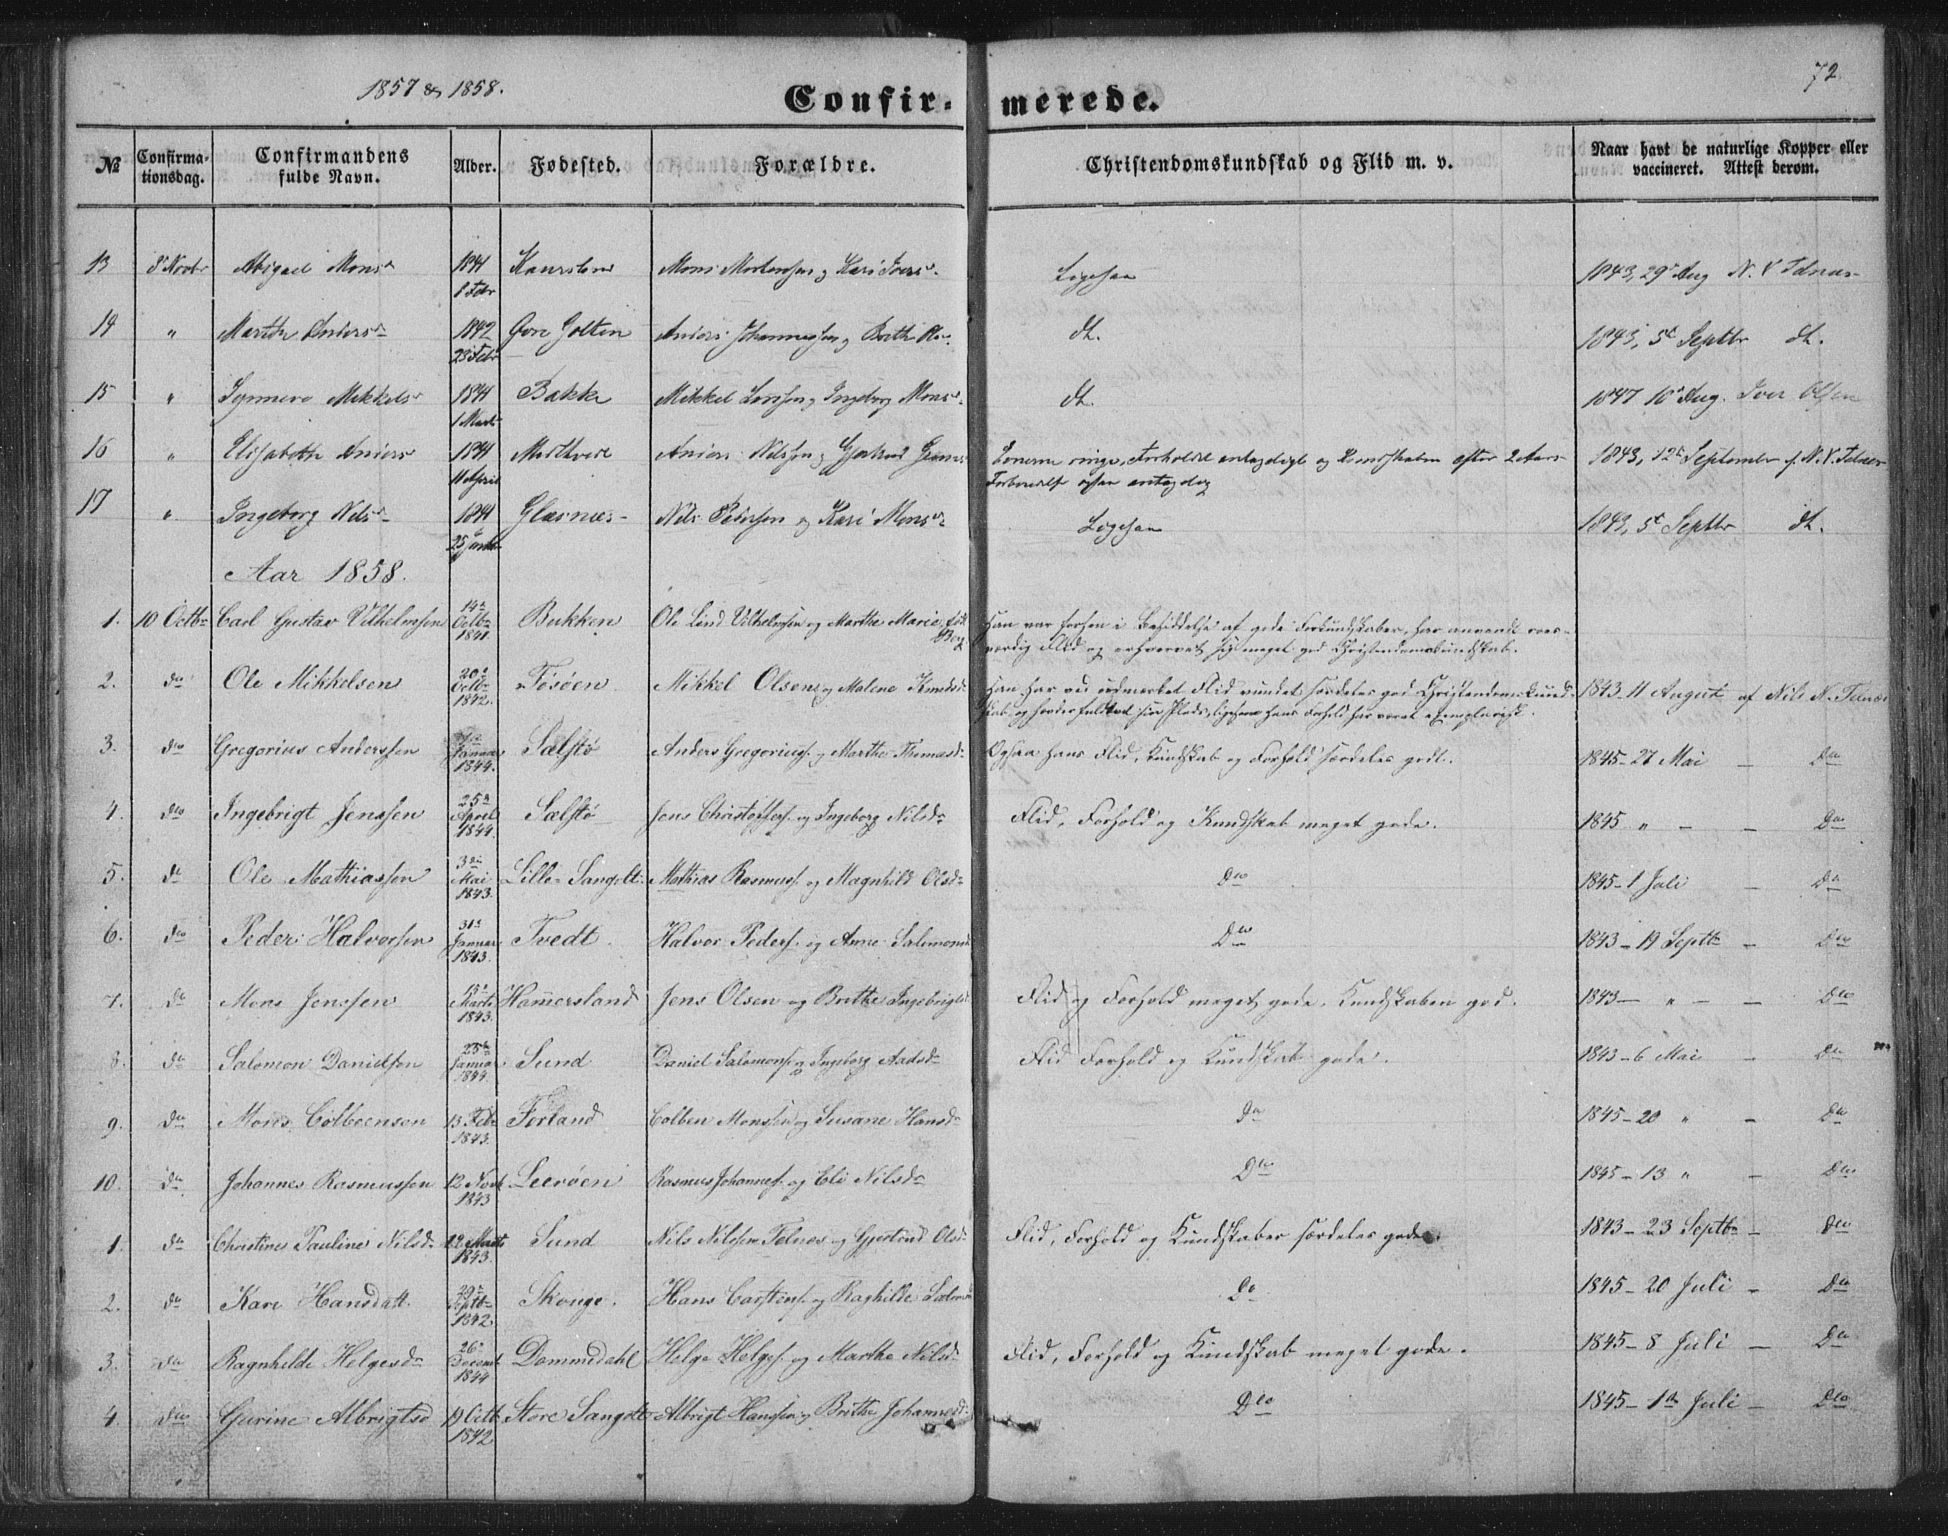 1857 & 1858.
Confirmerede.
72
№ Confirmationsdag. Confirmandens fulde Navn. Alder. Fødested. Forældre. Christendomskundskab og Flid m. v. Naar havt de naturlige Kopper eller vaccineret. Attest derom.
13 8 Novbr Abigael Monsdr 1841 1 Febr Mons Mortensen og Kari Iversdr. Ligesaa 1843, 29 Aug N. N. Telnæs
14 " Marthe Andersdr 1842 23 Febr Øvre Golten Anders Johannessen og Brithe dt. 1843, 5t Septbr dt.
15 " Synneve Mikkelsdr 1841 1 Marts Bakke Mikkel Larssen og Ingeborg Monsdr. dt. 1847 10 Aug. Iver Olsen
16 " Elisabeth Andersdr 1841 11 April Anders Nilssen og Gjertrud Evnerne ringe, Forholdet antageligt og Kundskaben efter 2 Aars Forberedelse ogsaa antagelig 1843, 12t September af N. N. Telnæs
17 " Ingeborg Nilsdr 1841 25 Glæsnæs Nils Pedersen og Kari Monsdr Ligesaa 1843, 5t Septbr dt.
Aar 1858.
1. 10 Octbr Carl Gustav Vilhelmsen 14de Octbr 1841. Bukken Ole Lind Vilhelmsen og Marthe Marie, født Boy Han var forhen i Besiddelse af gode Forkundskaber, har anvendt roesværdig Flid og erhvervet sig meget god Christendomskundskab.
2. do Ole Mikkelsen 20de Octbr 1842. Tøsøen Mikkel Olsen og Malene Knudsd. Han har ved udmærket Flid vundet særdeles god Christendomskundskab og hæderfuldt sin Plads, ligesom hans Forhold har været exemplarisk. 1843. 11 August af Nils N. Telnæs
3. do Gregorius Anderssen Januar 1844. Sælstø Anders Gregoriuss. og Marthe Thomasd. Ogsaa hans Flid, Kundskab og Forhold særdeles godt. 1845 - 27 Mai - Do
4. do Ingebrigt Jenssen 25de April 1844. Sælstø Jens Christoffers. og Ingeborg Nilsdr Flid, Forhold og Kundskab meget gode. 1845 " - - Do
5. do Ole Mathiassen 3die Mai 1843. Lille Sangolt. Mathias Rasmuss. og Magnhild Olsdr Do 1845 - 1 Juli - Do
6. do Peder Halvorsen 31te Januar 1843. Tvedt. Halvor Peders. og Anne Salomonsd Do 1843 - 19 Septbr - Do
7. do Mons Jenssen 15de Marts 1843. Hamersland Jens Olsen og Brithe Ingebrigtsd Flid og Forhold meget gode, Kundskaben god. 1843 - " - - Do
8. do Salomon Danielsen 23de Januar 1844. Sund Daniel Salomons. og Ingeborg Aadsdr Flid Forhold og Kundskab gode. 1843 - 6 Mai - Do
9. do Mons Colbeensen 13 Febr 1843. Førland Colben Monssen og Susane Hansdr Do 1845 - 20 " - Do
10. do Johannes Rasmussen 12 Novb 1843 Leerøen Rasmus Johannes. og Eli Nilsdr Do 1845 - 13 " - Do
1. do Christine Pauline Nilsdr 12 Marts 1843. Sund Nils Nilssen Telnæs og Gjertrud Olsd. Flid, Forhold og Kundskaber særdeles gode. 1843 - 23 Septbr - Do
2. do Kari Hansdatt. 29de Septbr 1842. Skonge. Hans Carstens. og Raghilde Do 1845 - 20 Juli - Do
3. do Ragnhilde Helgesdr 26de Decemb. 1844 Dommedahl Helge Helges. og Marthe Nilsdr Flid, Forhold og Kundskab meget gode. 1845 - 8 Juli - Do
4. do Gurine Albrigtsd 19 Octb. 1842 Store Sangolt Albrigt Hanssen og Brithe Johannesd. Do 1845 - 1te Juli - Do